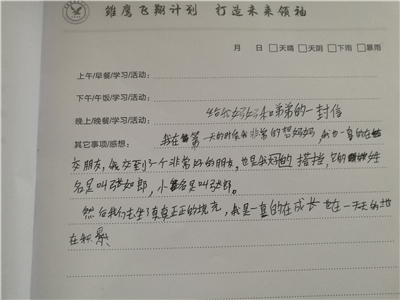 雏鹰飞翔计划 打造未来领袖
月 日 □天晴 □天阴 □下雨 □暴雨
上午/早餐/学习/活动：
下午/午饭/学习/活动：
晚上/晚餐/学习/活动： 给妈妈和弟弟的一封信
其它事项/感想： 我在第一天的时候我非常的想妈妈，我也一直的在
交朋友，我交到了一个非常好的朋友，也是我的搭挡，它的姓
名是叫张如郎，小名是叫张郎。
然后我们去坐了真真正正的坦克，我是一直的在成长也在一天天的地
在积累